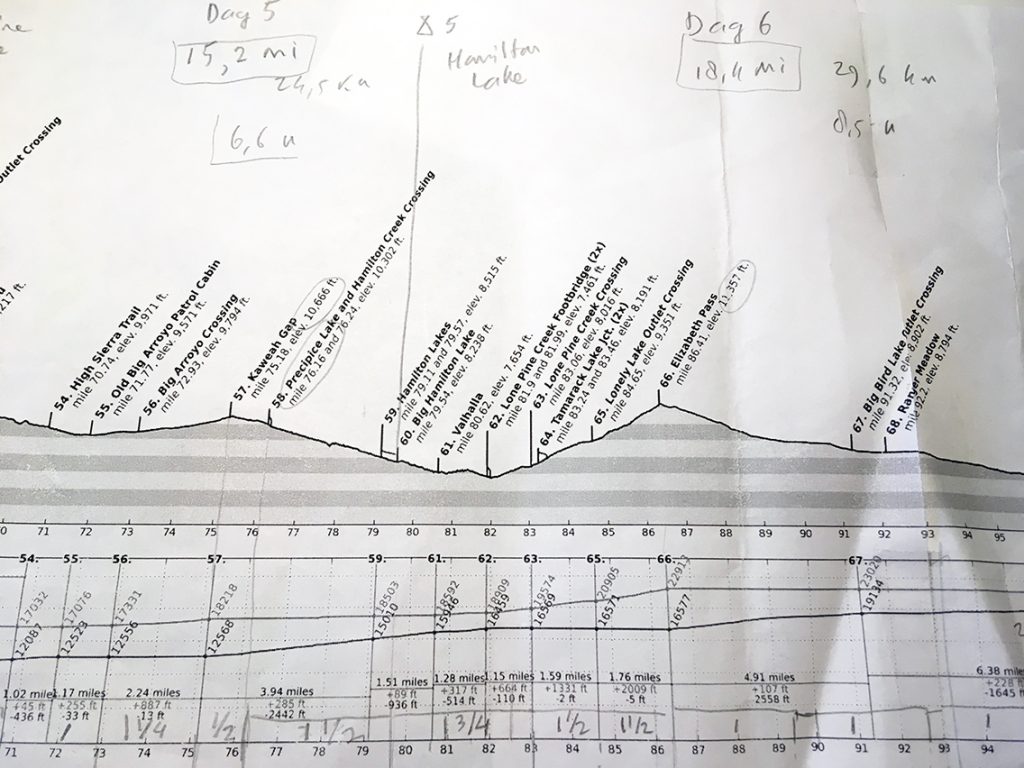 Dag 5
15,2 mi
24,5 km
6,6 u
Δ 5
Hamilton
Lake
Dag 6
18,4 mi
29,6 km
8,5 u
Outlet Crossing
54. High Sierra Trail
mile 70.74, elev. 9.971 ft.
55. Old Big Arroyo Patrol Cabin
mile 71.77, elev. 9.571 ft.
56. Big Arroyo Crossing
mile 72.93, elev. 8.794 ft.
57. Kaweah Gap
mile 75.18, elev. 10.666 ft.
58. Precipice Lake and Hamilton Creek Crossing
mile 76.16 and 76.24, elev. 10.302 ft.
59. Hamilton Lakes
mile 79.11 and 79.57, elev. 8.515 ft.
60. Big Hamilton Lake
mile 79.54, elev. 8.238 ft.
61. Valhalla
mile 80.62, elev. 7.654 ft.
62. Lone Pine Creek Footbridge (2x)
mile 81.9 and 81.99, elev. 7.461 ft.
63. Lone Pine Creek Crossing
mile 83.06, elev. 8.016 ft.
64. Tamarack Lake Jct. (2x)
mile 83.24 and 83.46, elev. 8.191 ft.
65. Lonely Lake Outlet Crossing
mile 84.65, elev. 9.357 ft.
66. Elizabeth Pass
mile 86.41, elev. 11.357 ft.
67. Big Bird Lake outlet Crossing
mile 91.32, elev. 8.902 ft.
68. Ranger Meadow
mile 92.2, elev. 8.794 ft.
71 72 73 74 75 76 77 78 79 80 81 82 83 84 85 86 87 88 89 90 91 92 93 94 95
54. 55. 56. 57. 59. 61. 62. 63. 65. 66. 67.
17032 17076 17331 18218 18503 18909 19574 20905 23020
12087 12523 12556 12568 15010 16459 16569 16571 16577 19134
1.02 miles 1.17 miles 2.24 miles 3.94 miles 1.51 miles 1.28 miles 1.15 miles 1.59 miles 1.76 miles 4.91 miles 6.38 miles
+45 ft +255 ft +887 ft +285 ft +89 ft +317 ft +664 ft +1331 ft +2009 ft +107 ft +228 ft
-436 ft -33 ft -13 ft -2442 ft -936 ft -514 ft -110 ft -2 ft -5 ft 2558 ft -1645
1 1 1/4 1/2 1 1/2 1 3/4 1 1/2 1 1/2 1 1 1
71 72 73 74 75 76 77 78 79 80 81 82 83 84 85 86 87 88 89 90 91 92 93 94